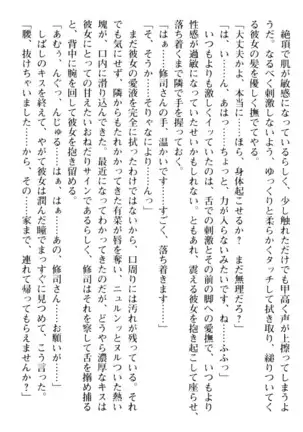 絶頂で肌が敏感になっているらしく、少し触れただけでも甲高く声が上擦ってしまよ
うだ。なるべく刺激しないよう、ゆっくりと柔らかくタッチして拭き取り、縋りついてく
る彼女の髪を優しく撫でてやる。
「大丈夫かよ、本当に……ほら、身体起こせるか？　まだ無理だろ？」
「は、い……ん、あはっ……ちょっと、力が入らないみたいです、ね……ふふっ」
いつもよりも激しくイッていたのは、舌での刺激とその前の脚への愛撫で、いつもより
性感が過敏になっていたせいかもしれない。ともあれ、震える彼女を抱き起こして座らせ、
落ち着くまで隣で手を握っておく。
「はぁ……修司さんの手、温かいです……すごく、落ち着きます……」
「そ、そうか……そりゃなにより……んっ」
まだ彼女の愛液を完全に拭ったわけではないから、口周りには汚れが残っている。それ
でも気にせず、隣からもたれかかってきた有菜が唇を奪い、ニュルンッとヌルついた熱い
塊が、口内に滑り込んできた。最近になってわかってきたのだが、どうやら濃厚なキスは
彼女にとっての甘えたいおねだりサインであるらしく、修司はそれを察して舌を搦め捕る
と、背中に腕を回して彼女を抱き留める。
「あむぅ、んぐっ、んじゅる……はぁ、はぁ……あの、修司さん……お願いが……」
しばしのキスを終えて、やがて彼女は潤んだ瞳でまっすぐに見つめて、こう言った。
「腰、抜けちゃいました……から、その……家まで、連れて帰ってもらえませんか？」